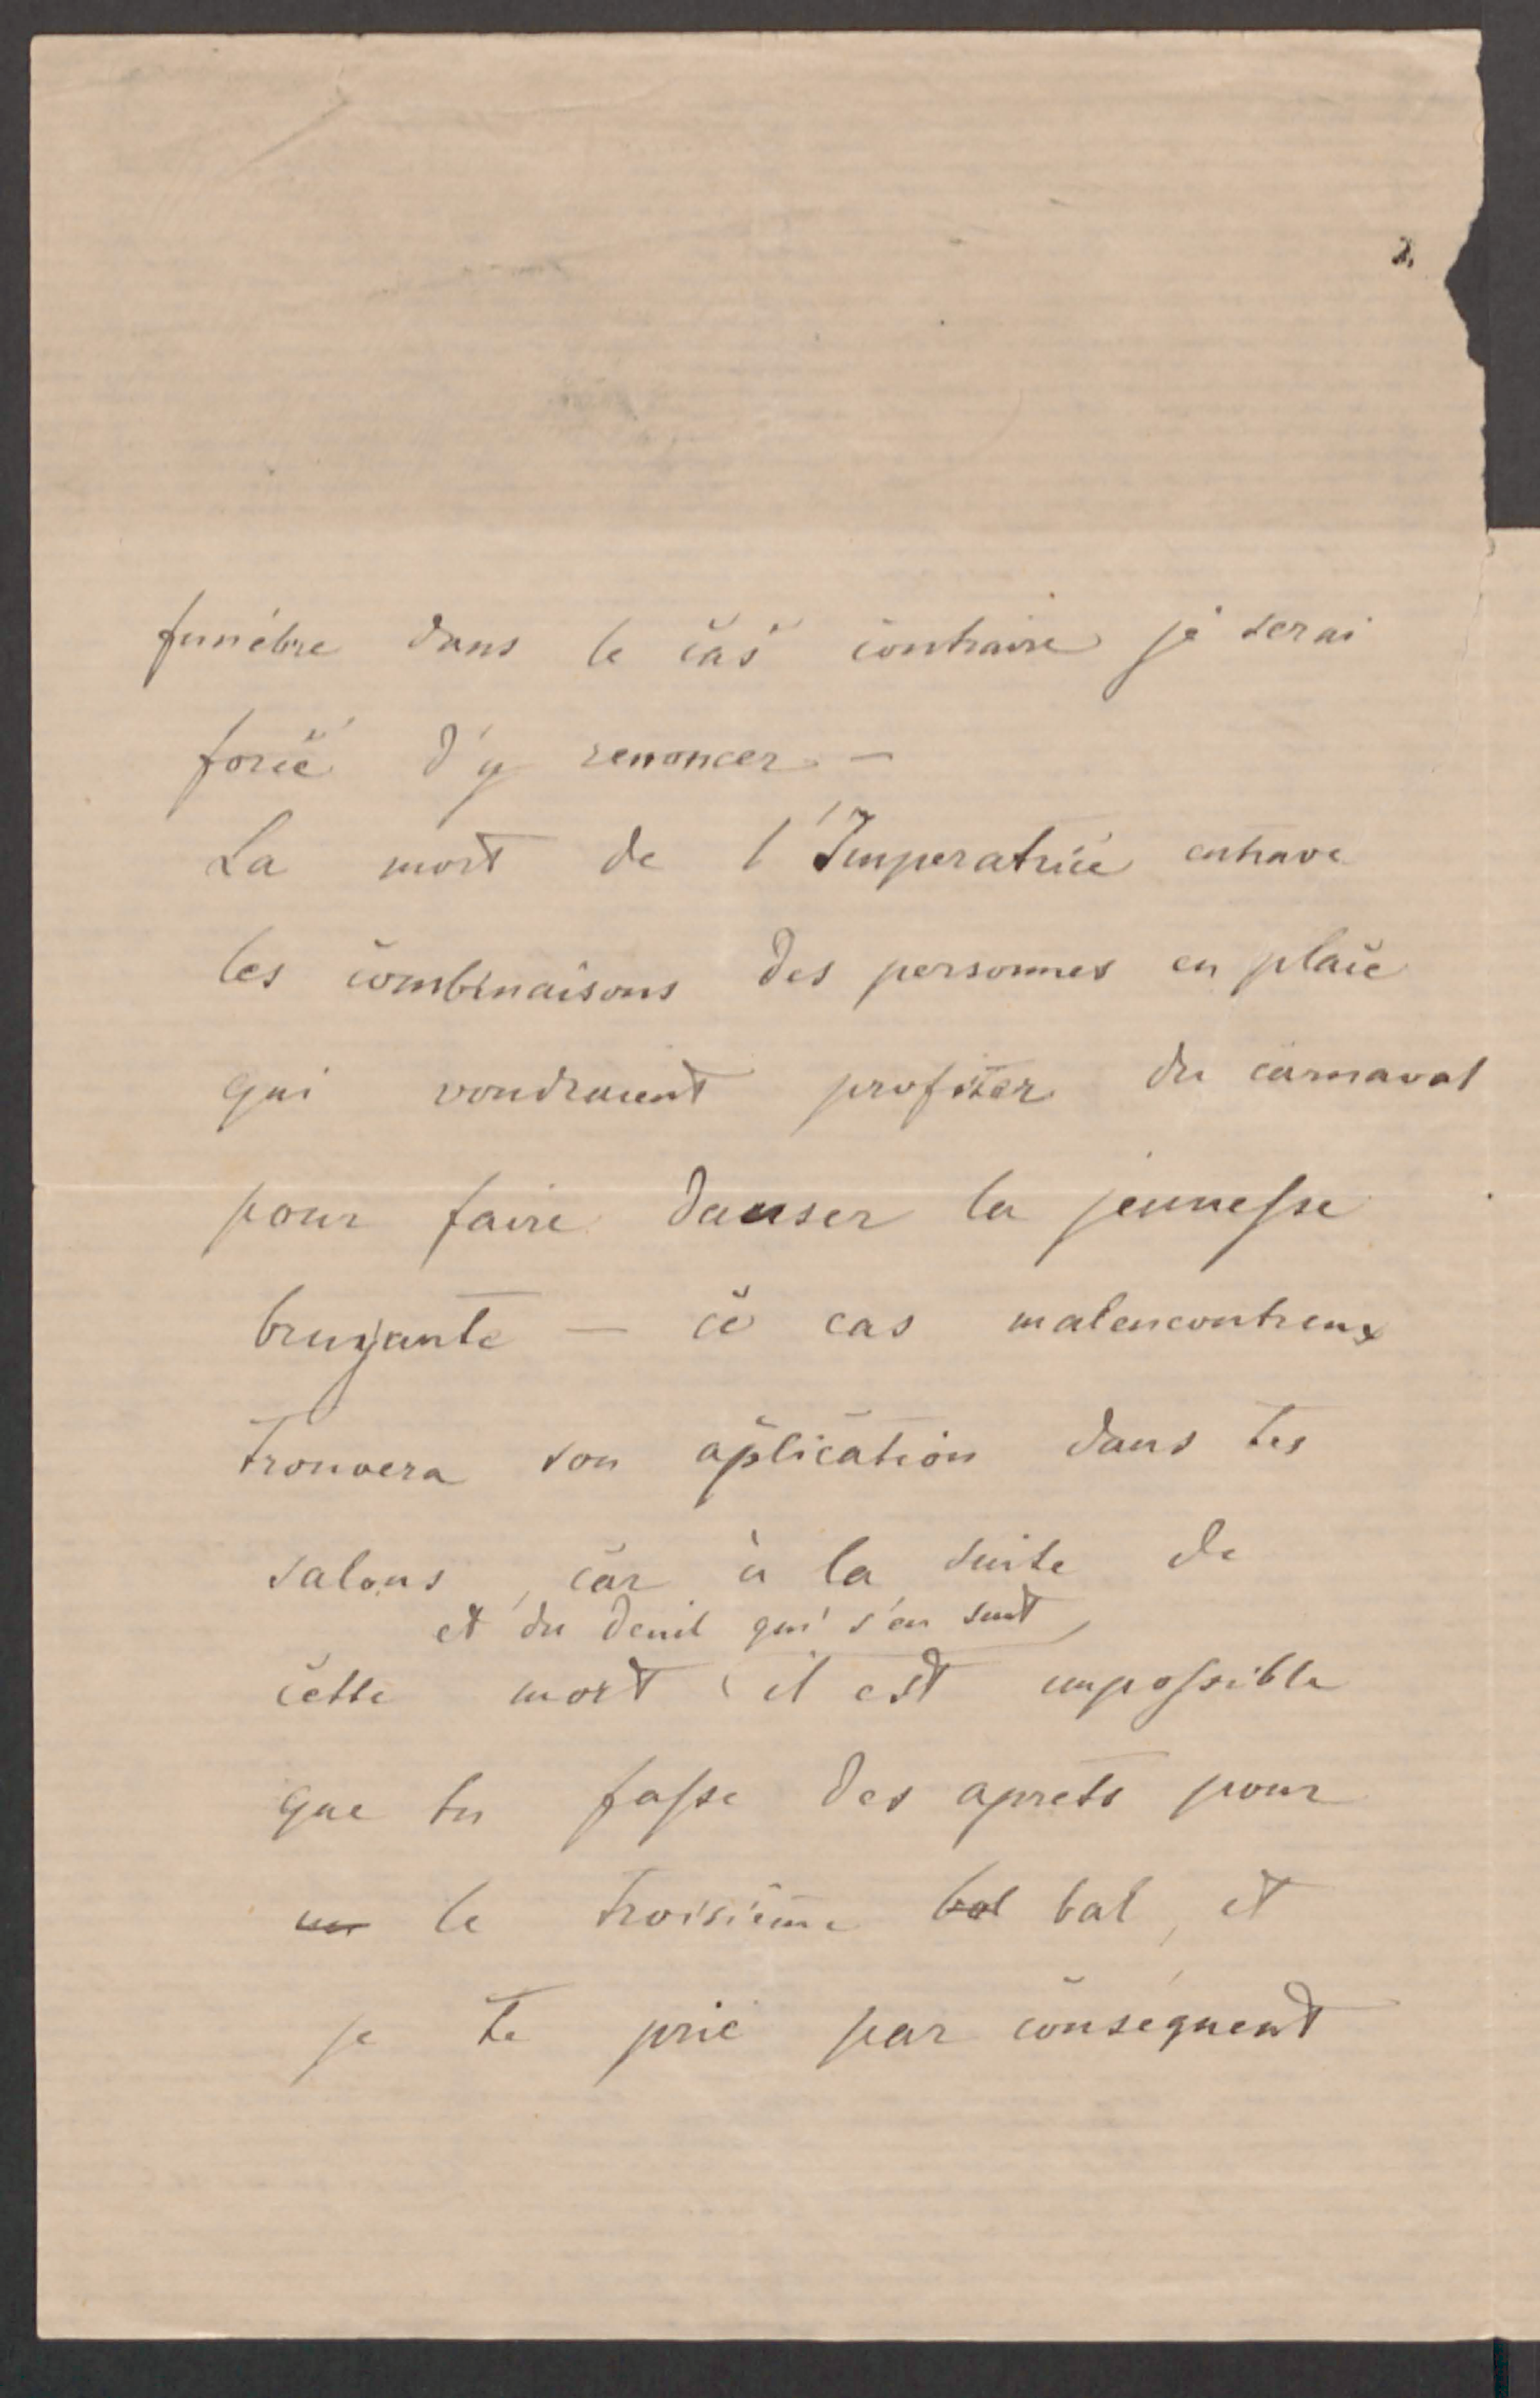 2.
funébre dans le cas contraire je serai
forcé d'y renoncer —
La mort de l'Imperatrice entrave
les combinaisons des personnes en place
qui voudraient profiter du carnaval
pour faire danser la jeunesse
bruyante — ce cas malencontreux
trouvera son aplication dans tes
salons, car à la suite de
et du deuil qui s'en suit,
cette mort il est impossible
que tu fasse des aprets pour
un le troisième bal bal, et
je te prie par conséquent